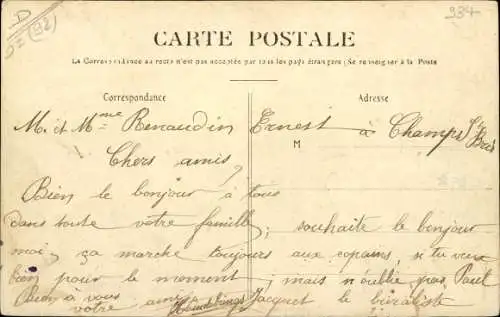 D
92 (92)
934
CARTE POSTALE
La Correspondance au recto n'est pas acceptée par tous les pays étrangers (Se renseigner à la Poste
Correspondance
Adresse
M
M. et Mme Renaudin Ernest à Champs St Bris
Chers amis
Bien le bonjour à tous
dans toute votre famille, souhaite le bonjour
moi, ça marche toujours aux copains, si tu veux
bien pour le moment; mais n'oublie pas Paul
Bien à vous Jacquet le buraliste
votre ami